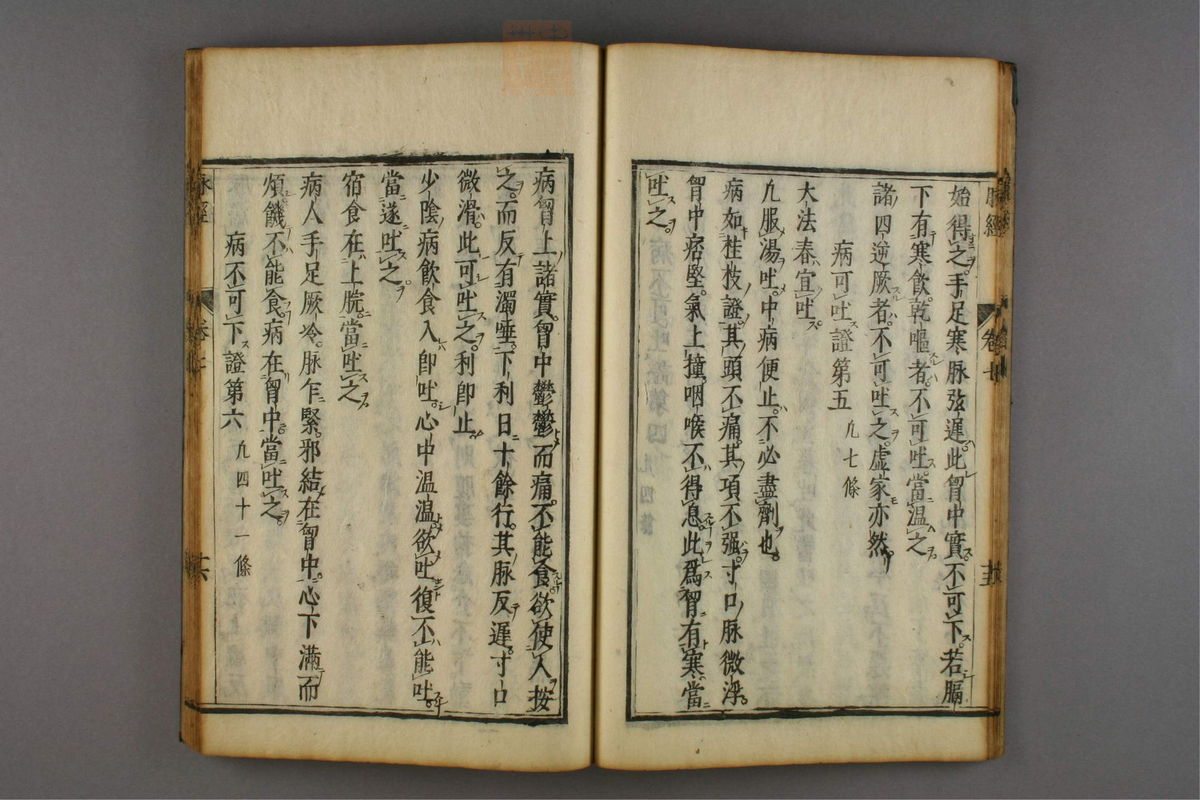 脉經
卷七
始得之手足寒脉弦遲此胷中實不可下若膈
下有寒飲乾嘔者不可吐當溫之
諸四逆厥者不可吐之虛家亦然
病可吐證第五 凡七條
大法春宜吐
凡服湯吐中病便止不必盡劑也
病如桂枝證其頭不痛其項不强寸口脉微浮
胷中痞堅氣上撞咽喉不得息此爲胷有寒當
吐之
病胷上諸實胷中鬱鬱而痛不能食欲使人按
之而反有濁唾下利日十餘行其脉反遲寸口
微滑此可吐之利即止
少陰病飲食入即吐心中温温欲吐復不能吐
當遂吐之
宿食在上脘當吐之
病人手足厥冷脉乍緊邪結在胷中心下滿而
煩饑不能食病在胷中當吐之
病不可下證第六 凡四十一條
脉經
卷七
十六